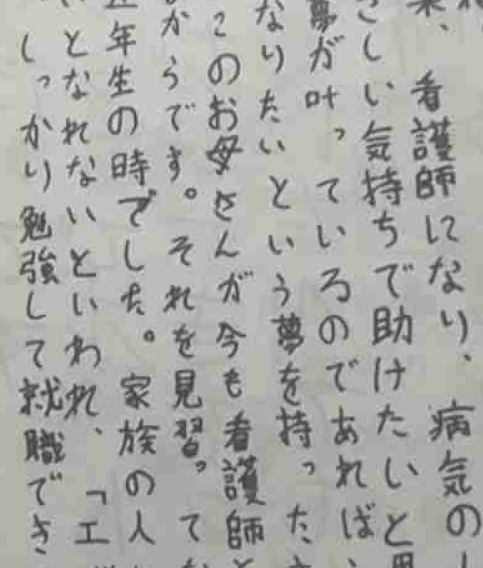 来、看護師になり、病気の
さしい気持ちで助けたいと思
夢が叶っているのであれば、
なりたいという夢を持った
このお母さんが今も看護師と
からです。それを見習ってな
年生の時でした。家族の人
いとなれないといわれ、「工
しっかり勉強して就職でき